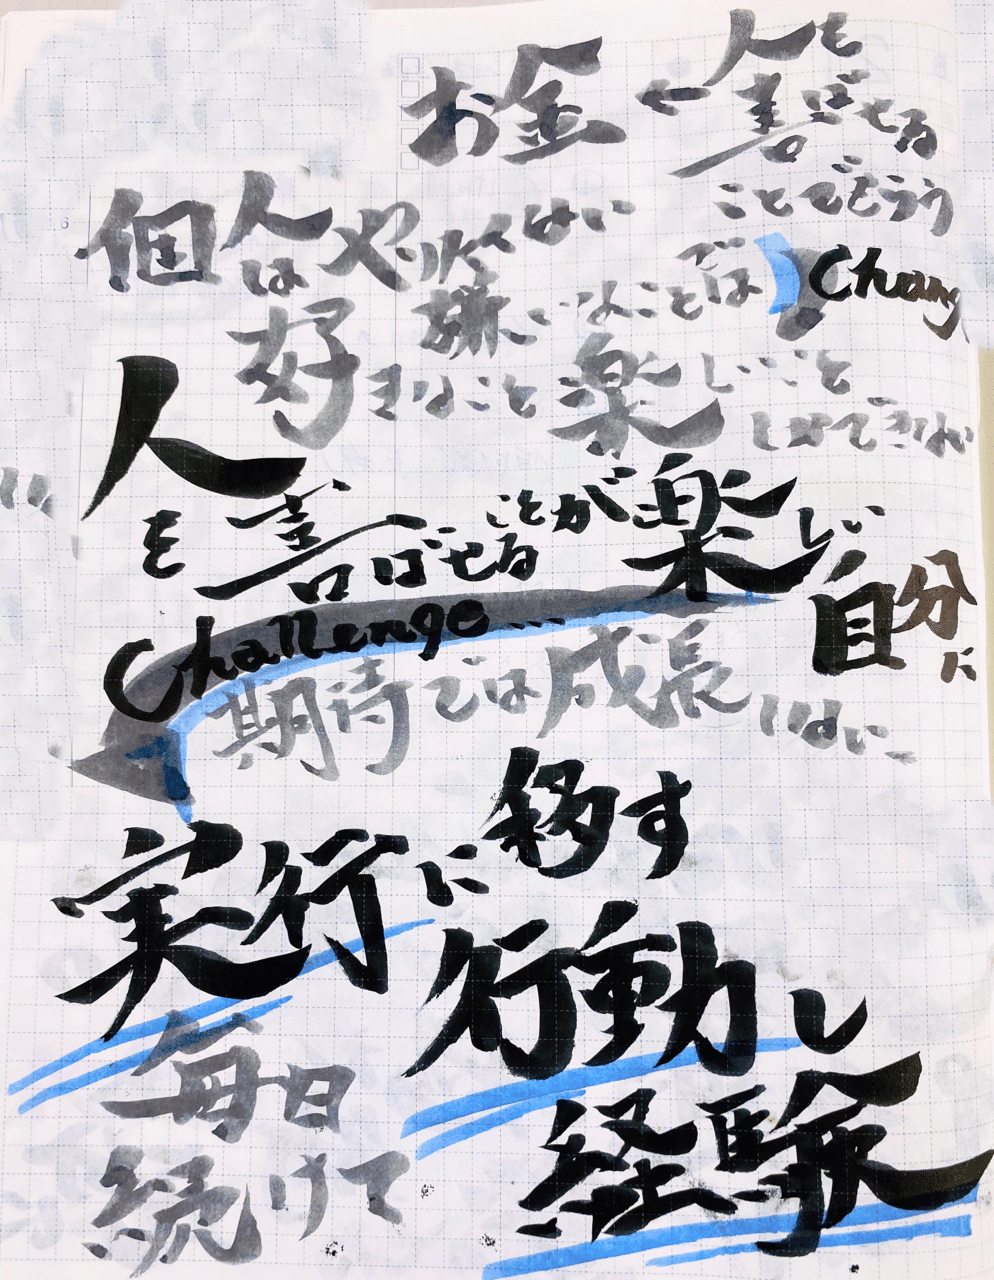 お金 ← 人を
喜ばせる
ことでもらう
個人はやりたくない
嫌なことでは
Chang
好きなこと楽しいこと
しかできない
人を喜ばせることが楽しい
自分に
Challenge...
期待では成長しない
実行に移す
行動し
毎日
経験
続けて